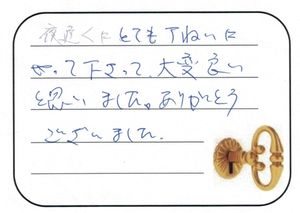 夜遅くにとてもていねいに
やって下さって、大変良い
と思いました。ありがとう
ございました。